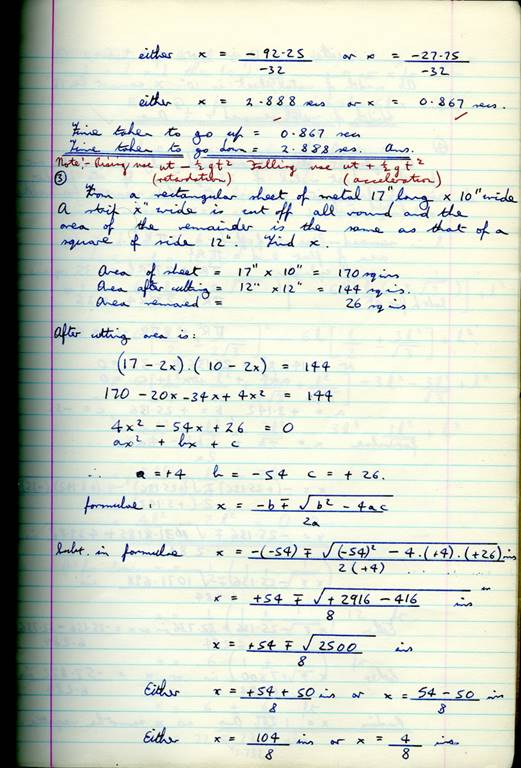 either x = -92.25 / -32 or x = -27.75 / -32
either x = 2.888 secs or x = 0.867 secs.
Time taken to go up = 0.867 secs
Time taken to go down = 2.888 secs. Ans.
Note:- Rising use ut - ½gt² Falling use ut + ½gt²
(retardation) (acceleration)
③
From a rectangular sheet of metal 17" long x 10" wide
A strip x" wide is cut off all round and the
area of the remainder is the same as that of a
square of side 12". Find x.
Area of sheet = 17" x 10" = 170 sq ins
Area after cutting = 12" x 12" = 144 sq ins.
Area removed = 26 sq ins
After cutting area is:
(17 - 2x).(10 - 2x) = 144
170 - 20x - 34x + 4x² = 144
4x² - 54x + 26 = 0
ax² + bx + c
∴ a = +4 b = -54 c = +26.
formulae: x = -b ∓ √b² - 4ac / 2a
Subt. in formulae x = -(-54) ∓ √(-54)² - 4.(+4).(+26) ins / 2(+4)
x = +54 ∓ √+2916 - 416 / 8 ins
x = +54 ∓ √2500 / 8 ins
Either x = +54 + 50 / 8 ins or x = 54 - 50 / 8 ins
Either x = 104 / 8 ins or x = 4 / 8 ins